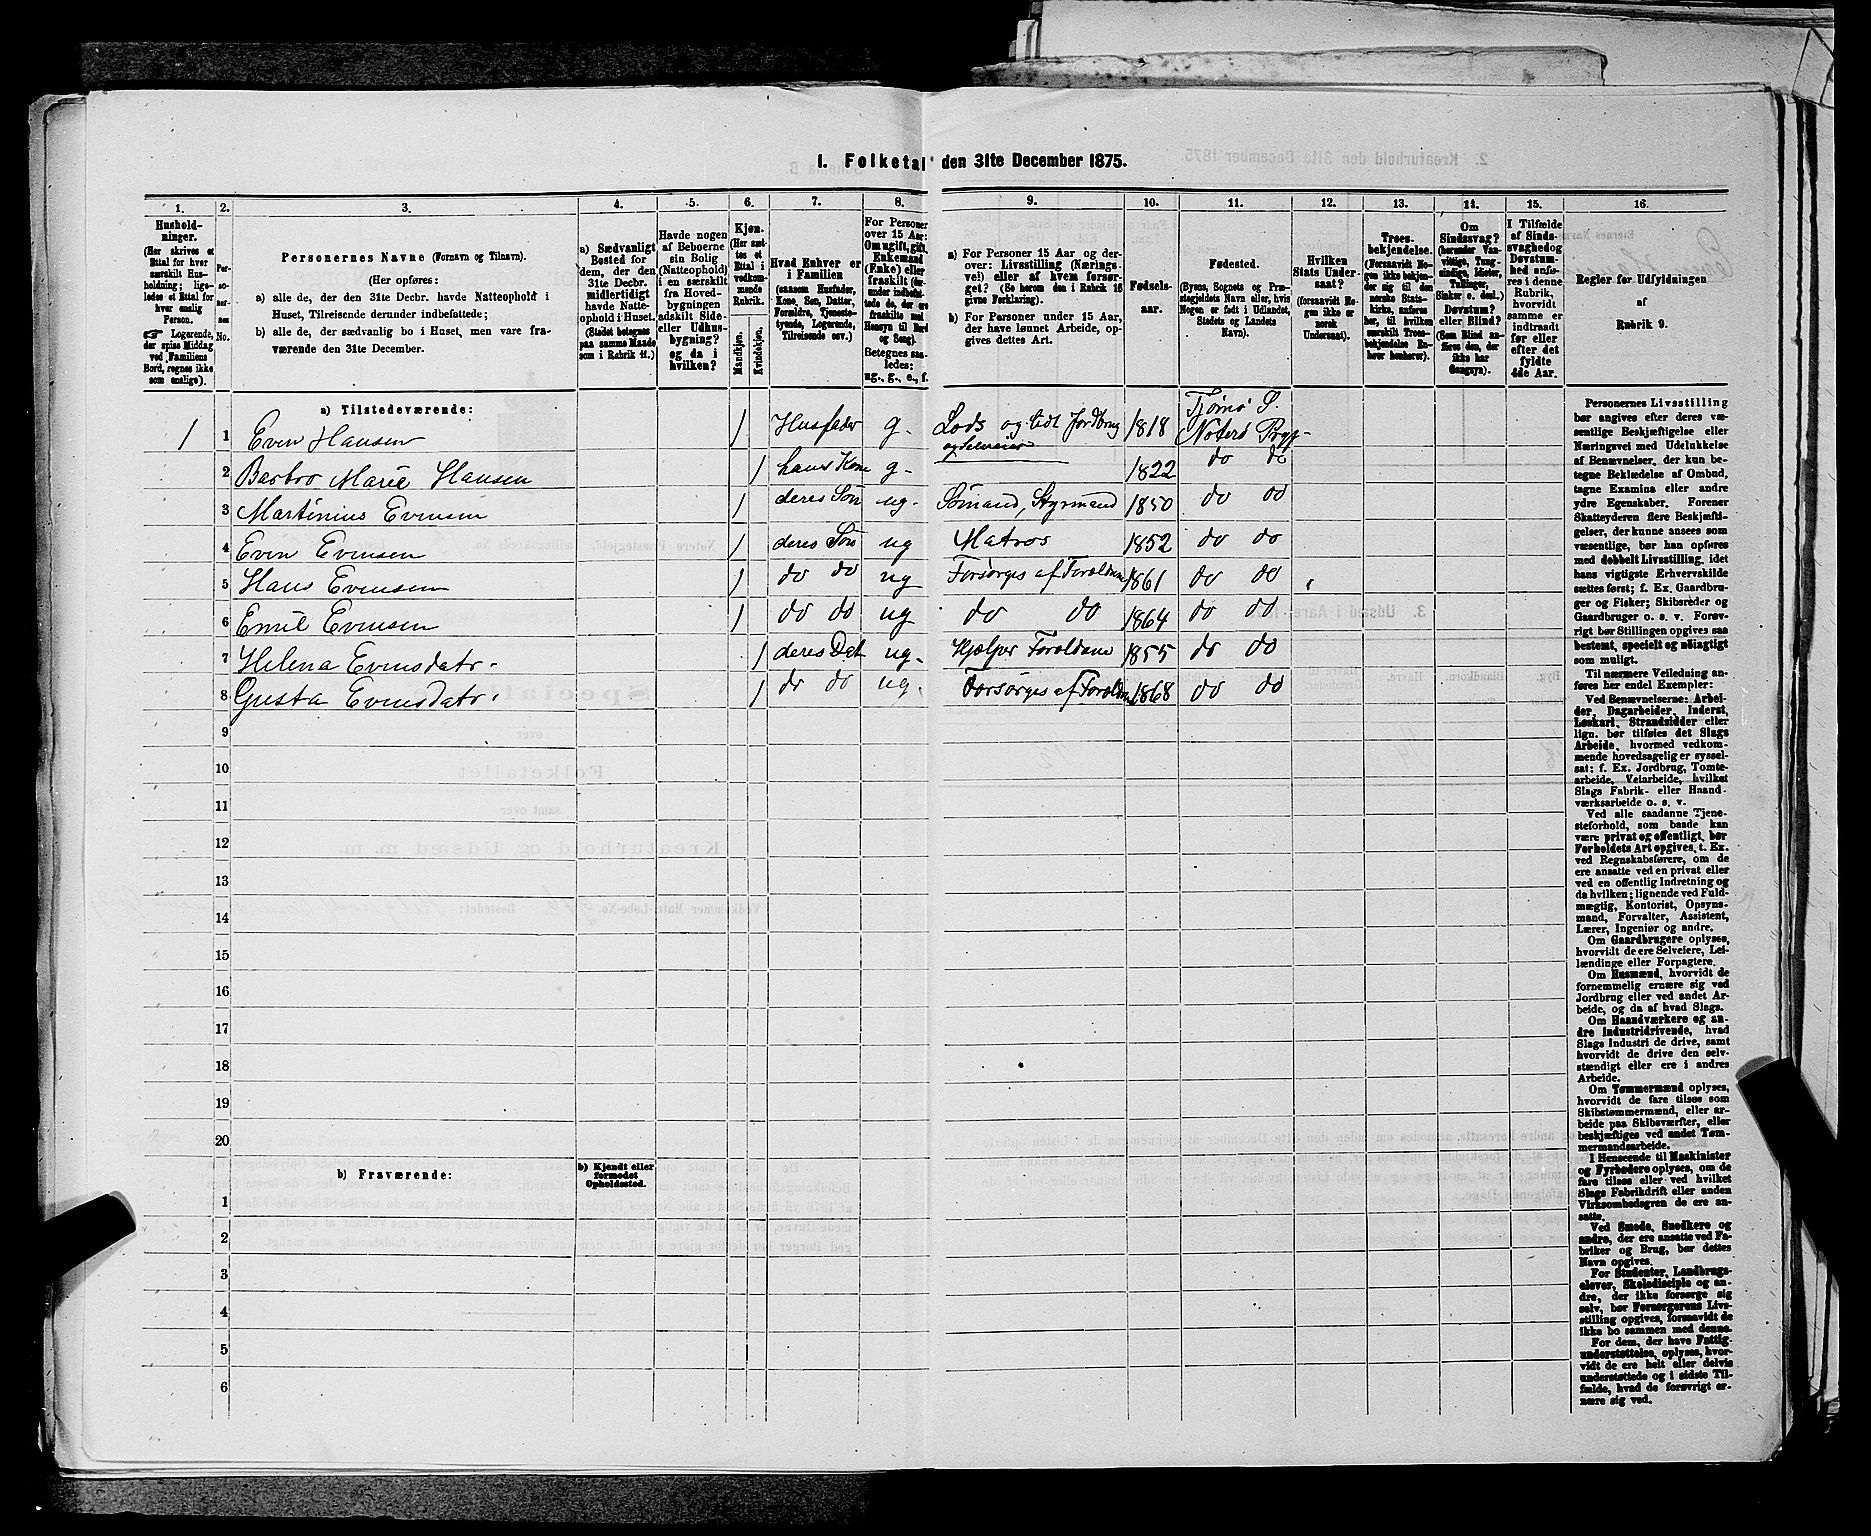 1. Folketal den 31te December 1875.
1. 2. 3. 4. 5. 6. 7. 8. 9. 10. 11. 12. 13. 14. 15. 16.
Hushold-
ninger.
(Her skrives et
Ettal for hver
særskilt Hus-
holdning; lige-
ledes et Ettal for
hver enslig
Person.
☞ Logerende,
der spise Middag
ved Familiens
Bord, regnes ikke
som enslige).
Per-
soner-
nes
No.
Personernes Navne (Fornavn og Tilnavn).
(Her opføres:
a) alle de, der den 31te Decbr. havde Natteophold i
Huset, Tilreisende derunder indbefattede;
b) alle de, der sædvanlig bo i Huset, men vare fra-
værende den 31te December.
a) Sædvanligt
Bosted for
dem, der den
31te Decbr.
midlertidigt
havde Natte-
ophold i Huset.
(Stedet betegnes
paa samme Maade
som i Rubrik 11.)
Havde nogen
af Beboerne
sin Bolig
(Natteophold)
i en særskilt
fra Hoved-
bygningen
adskilt Side-
eller Udhus-
bygning?
og da i
hvilken?
Kjøn.
(Her sæt-
tes et
Ettal i
vedkom-
mende
Rubrik.
Mandkjøn.
Kvindekjøn.
Hvad Enhver er
i Familien
(saasom Husfader,
Kone, Søn, Datter,
Forældre, Tjeneste-
tyende, Logerende,
Tilreisende osv.)
For Personer
over 15 Aar:
Om ugift, gift,
Enkemand
(Enke) eller
fraskilt (der-
under indbefat-
tede de, der ere
fraskilte med
Hensyn til Bord
og Seng).
Betegnes saa-
ledes:
ug., g., e., f.
a) For Personer 15 Aar og der-
over: Livsstilling (Nærings-
vei) eller af hvem forsør-
get? (Se herom den i Rubrik 16
givne Forklaring).
b) For Personer under 15 Aar,
der have lønnet Arbeide, op-
gives dettes Art.
Fødsels-
aar.
Fødested.
(Byens, Sognets og Præ-
stegjeldets Navn eller, hvis
Nogen er født i Udlandet,
Stedets og Landets
Navn).
Hvilken
Stats Under-
saat?
(forsaavidt No-
gen ikke er
norsk
Undersaat).
Troes-
bekjendelse.
(Forsaavidt No-
gen ikke bekjen-
der sig til den
norske Stats-
kirke, anføres
her, til hvilken
særskilt Troes-
bekjendelse En-
hver henhører).
Om
Sindssvag?
(herunder Van-
vittige, Tung-
sindige, Idioter,
Tullinger,
Sinker o. desl.)
Døvstum?
eller Blind?
(Som Blind an-
føres den, der
ikke har
Gangsyn).
I Tilfælde
af Sinds-
svaghed og
Døvstum-
hed anfø-
res i denne
Rubrik,
hvorvidt
samme er
indtraadt
før eller
efter det
fyldte
4de Aar.
Regler for Udfyldningen
af
Rubrik 9.
a) Tilstedeværende:
1 1 Even Hansen 1 Husfader g. Lods og lidt Jordbrug 1818 Tjømø S.
og Selveier Noterø Prgj.
2 Barbro Marie Hansen 1 hans Kone g. 1822 do do
3 Martinius Evensen 1 deres Søn ug. Sømand, Styrmand 1850 do do
4 Even Evensen 1 deres Søn ug Matros 1852 do do
5 Hans Evensen 1 do do ug Forsørges af Forældrene 1861 do do
6 Emil Evensen 1 do do ug do do 1864 do do
7 Helena Evensdatr. 1 deres Dat ug. Hjælper Forældrene 1855 do do
8 Gusta Evensdatr. 1 do do ug. Forsørges af Forældrene 1868 do do
9
10
11
12
13
14
15
16
17
18
19
20
b) Fraværende: b) Kjendt eller
formodet
Opholdssted.
1
2
3
4
5
6
Personernes Livsstilling
bør angives efter deres væ-
sentlige Beskjæftigelse eller
Næringsvei med Udelukkelse
af Benævnelser, der kun be-
tegne Beklædelse af Ombud,
tagne Examina eller andre
ydre Egenskaber. Forener
Skatteyderen flere Beskjæfti-
gelser, der kunne ansees som
væsentlige, bør han opføres
med dobbelt Livsstilling, idet
hans vigtigste Erhvervskilde
sættes først; f. Ex. Gaardbru-
ger og Fisker; Skibsreder og
Gaardbruger o. s. v. Forøv-
rigt bør Stillingen opgives saa
bestemt, specielt og nøiagtigt
som muligt.
Til nærmere Veiledning an-
føres her endel Exempler:
Ved Benævnelserne: Arbei-
der, Dagarbeider, Inderst,
Løskarl, Strandsidder eller
lign. bør tilføies det Slags
Arbeide, hvormed vedkom-
mende hovedsagelig er syssel-
sat; f. Ex. Jordbrug, Tomte-
arbeide, Veiarbeide, hvilket
Slags Fabrik- eller Haand-
værksarbeide o. s. v.
Ved alle saadanne Tjene-
steforhold, som baade kan
være privat og offentligt, bør
Forholdets Art opgives, t. Ex.
ved Regnskabsførere, om de
ere ansatte ved en privat eller
ved en offentlig Indretning og
da hvilken; lignende ved Fuld-
mægtig, Kontorist, Opsyns-
mand, Forvalter, Assistent,
Lærer, Ingeniør og andre.
Om Gaardbrugere oplyses,
hvorvidt de ere Selveiere, Lei-
lændinge eller Forpagtere.
Om Husmænd, hvorvidt de
fornemmelig ernære sig ved
Jordbrug eller ved andet Ar-
beide, og da af hvad Slags.
Om Haandværkere og an-
dre Industridrivende, hvad
Slags Industri de drive, samt
hvorvidt de drive den selv-
stændigt eller ere i andres
Arbeide.
Om Tømmermænd oplyses,
hvorvidt de fare tilsøs som
Skibstømmermænd, eller ar-
beide paa Skibsværfter, eller
beskjæftiges ved andet Tøm-
mermandsarbeide.
I Henseende til Maskinister
og Fyrbødere oplyses, om de
fare tilsøs eller ved hvilket
Slags Fabrikdrift eller anden
Virksomhedsgren de ere an-
satte.
Ved Smede, Snedkere og
andre, der ere ansatte ved Fa-
briker og Brug, bør dettes
Navn opgives.
For Studenter, Landbrugs-
elever, Skoledisciple og an-
dre, der ikke forsørge sig
selv, bør Forsørgerens Livs-
stilling opgives, forsaavidt de
ikke bo sammen med denne.
For dem, der have Fattig-
understøttelse, oplyses, hvor-
vidt de ere helt eller delvis
understøttede og i sidste Til-
fælde, hvad de forøvrigt er-
nære sig ved.